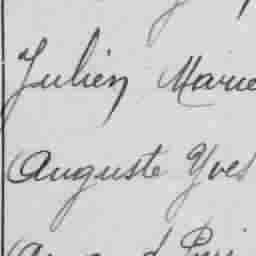 Julien Marie
Auguste Yves